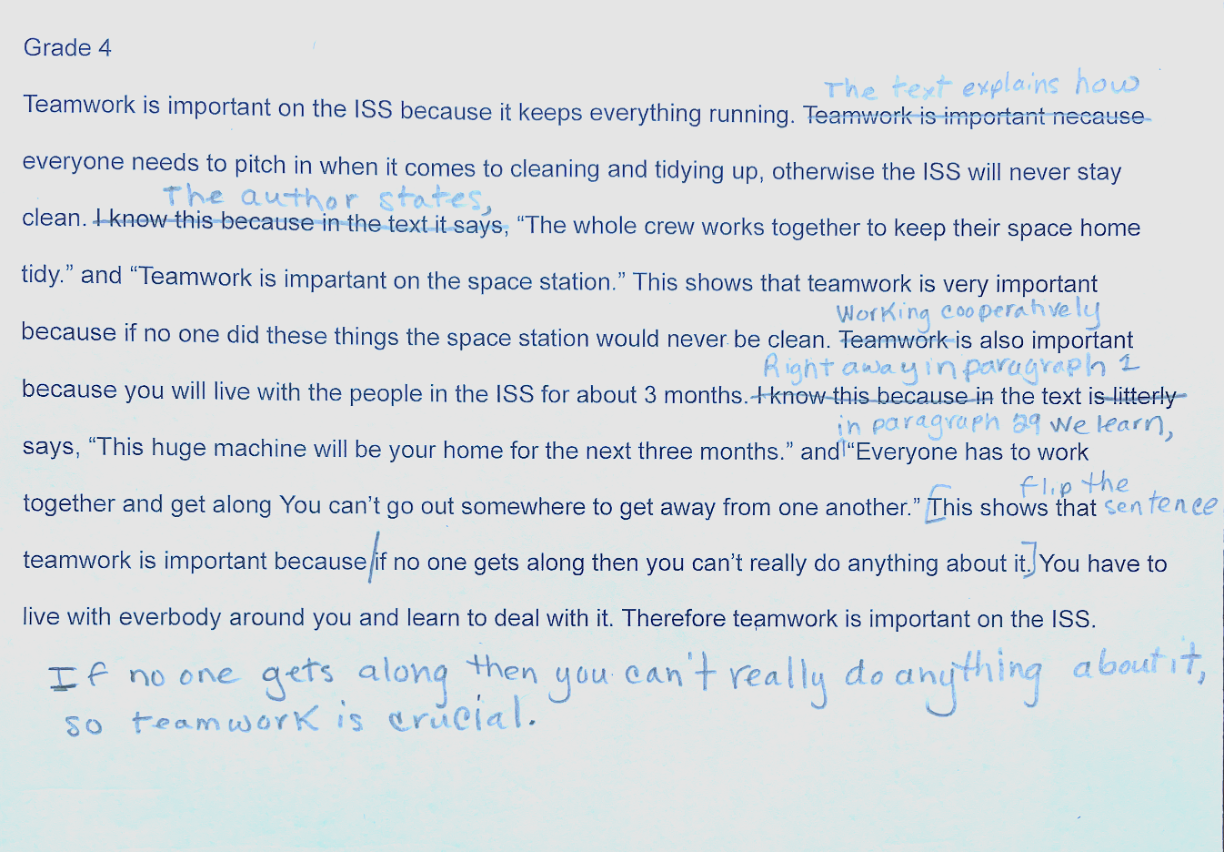 Grade 4
The text explains how
Teamwork is important on the ISS because it keeps everything running. Teamwork is important necause
everyone needs to pitch in when it comes to cleaning and tidying up, otherwise the ISS will never stay
The author states,
clean. I know this because in the text it says, “The whole crew works together to keep their space home
tidy.” and “Teamwork is impartant on the space station.” This shows that teamwork is very important
Working cooperatively
because if no one did these things the space station would never be clean. Teamwork is also important
Right away in paragraph 1
because you will live with the people in the ISS for about 3 months. I know this because in the text is litterly
in paragraph 29 we learn,
says, “This huge machine will be your home for the next three months.” and “Everyone has to work
flip the
together and get along You can’t go out somewhere to get away from one another.” [This shows that sentence
teamwork is important because/if no one gets along then you can’t really do anything about it.] You have to
live with everbody around you and learn to deal with it. Therefore teamwork is important on the ISS.
If no one gets along then you can't really do anything about it,
so teamwork is crucial.